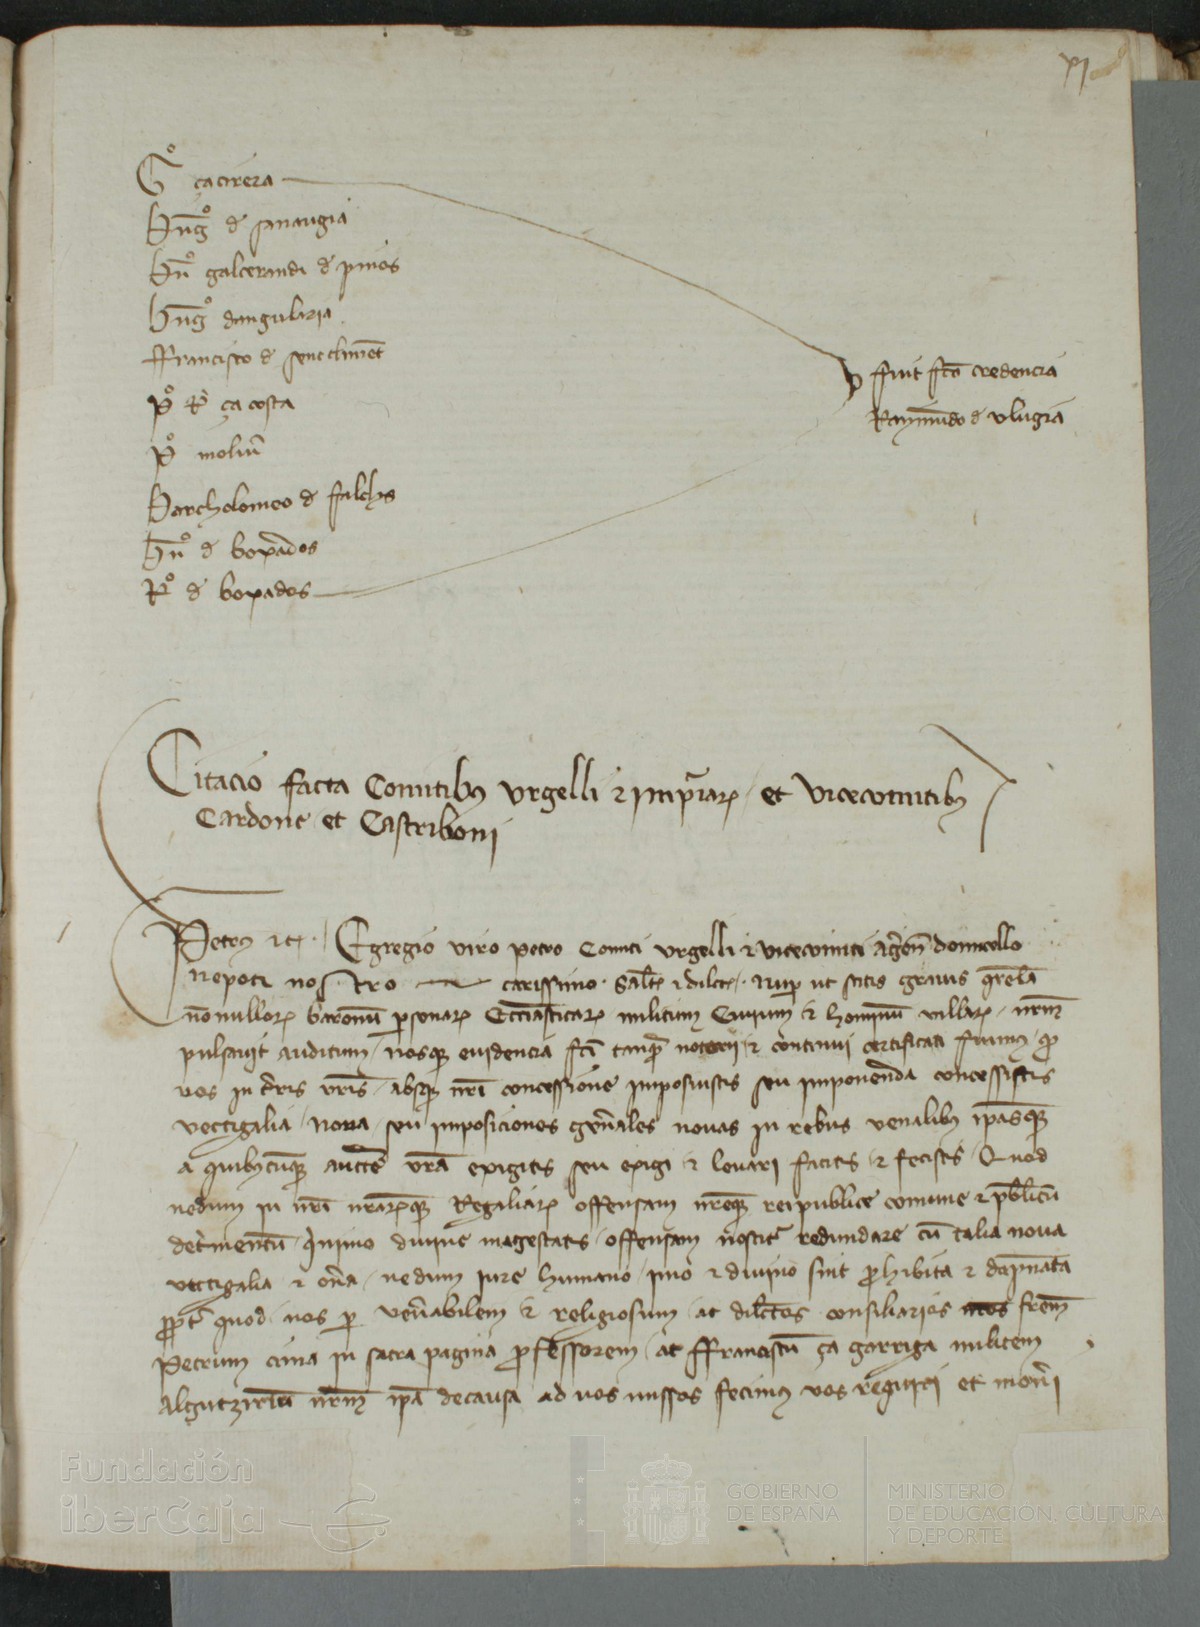 xj
Gº çacirera
Hugº de sanaugia
Bñº galcerandi de pinos
Hugº dangularia
ffrancisco de sentcliment
Pº Rº ça costa
Pº moliñ
Bartholomeo de falchs
Bñº de boxados
Rº de boxados
ffuit fcã credencia
Raymundo de vlugia
Citacio facta Comitibus Urgelli et impuriarum et vicecomitibus
Cardone et Castriboni
Petrus etc. Egregio viro petro Comiti Urgelli et vicecomiti ageñ domicello
nepoti nostro carissimo. Salt et dilcc. nup ut scitis gravis querela
nonnullorum baronum personarum Ecclasticarum militum Civium et hominum villarum nrm
pulsavit auditum nosque evidencia fci tanq notorii et continui certificati fuimus q
vos in terris vris absq nri concessione imposuistis seu imponenda concessistis
vectigalia nova seu imposiciones generales novas in rebus venalibus ipasque
a quibuscunque auctte vra exigitis seu exigi et levari facitis et fecistis Quod
nedum in nri nrarumque Regaliarum offensam nreque reipublice comune et publicum
detrimentum quinimo divine magestatis offensam noscitur redundare cum talia nova
vectigalia et onera nedum iure humano imo et divino sint prohibita et dapnata
propter quod nos per venerabilem et religiosum ac dilectos consiliarios nros frem
Petrum cima in sacra pagina professorem ac ffranciscum ça garriga militem
Algutzirium nrm ipa decausa ad vos missos fecimus vos requiri et moneri
Fundación
iberCaja
GOBIERNO
DE ESPAÑA
MINISTERIO
DE EDUCACIÓN, CULTURA
Y DEPORTE